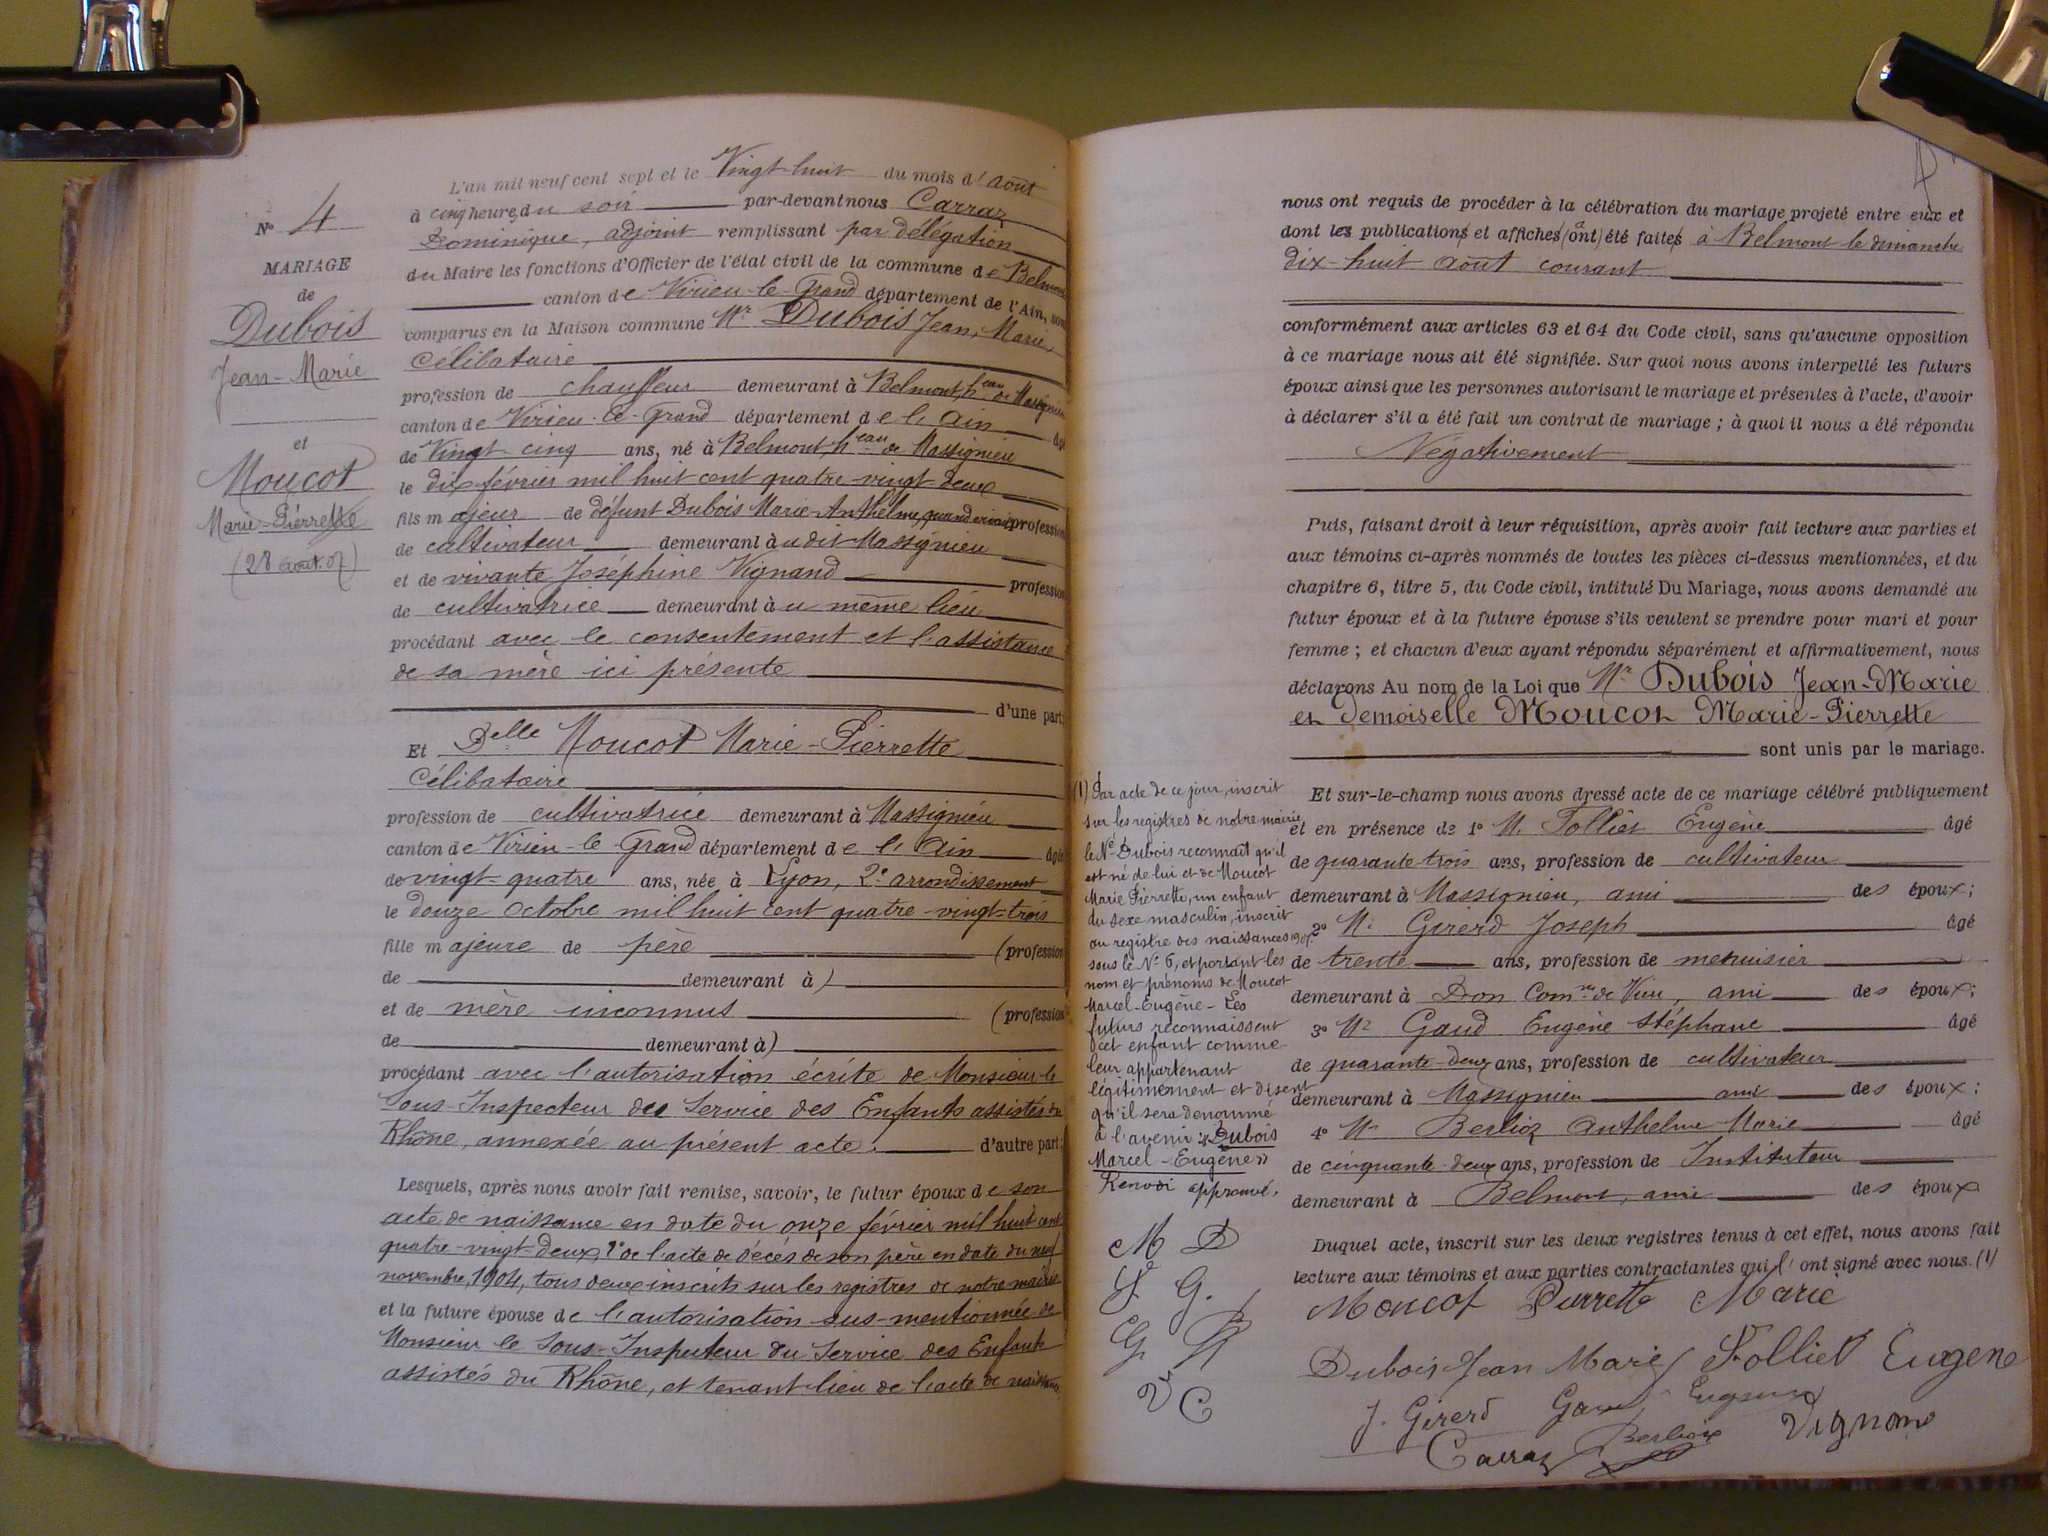 N° 4
MARIAGE
de
Dubois
Jean-Marie
et
Moucot
Marie-Pierrette
(28 août 07)
L'an mil neuf cent sept et le Vingt-huit du mois d'août
à cinq heures du soir par-devant nous Carraz
Dominique, adjoint remplissant par délégation
du Maire les fonctions d'Officier de l'état civil de la commune de Belmont
canton de Virieu-le-Grand département de l'Ain, sont
comparus en la Maison commune Mr Dubois Jean, Marie,
Célibataire
profession de chauffeur demeurant à Belmont, heau de Massignieu
canton de Virieu-le-Grand département de l'Ain âgé
de Vingt cinq ans, né à Belmont, heau de Massignieu
le dix février mil huit cent quatre-vingt deux
fils majeur de défunt Dubois Marie-Anthelme, quand vivait profession
de cultivateur demeurant audit Massignieu
et de vivante Joséphine Vignand profession
de cultivatrice demeurant au même lieu
procédant avec le consentement et l'assistance
de sa mère ici présente
d'une part;
Et Delle Moucot Marie-Pierrette
Célibataire
profession de cultivatrice demeurant à Massignieu
canton de Virieu-le-Grand département de l'Ain âgée
de vingt-quatre ans, née à Lyon, 2e arrondissement
le douze Octobre mil huit cent quatre-vingt-trois
fille majeure de père (profession
de demeurant à)
et de mère inconnus (profession
de demeurant à)
procédant avec l'autorisation écrite de Monsieur le
Sous-Inspecteur du Service des Enfants assistés du
Rhône, annexée au présent acte. d'autre part;
Lesquels, après nous avoir fait remise, savoir, le futur époux de son
acte de naissance en date du onze février mil huit cent
quatre-vingt-deux, 2° de l'acte de décès de son père en date du neuf
novembre 1904, tous deux inscrits sur les registres de notre mairie
et la future épouse de l'autorisation sus-mentionnée de
Monsieur le Sous-Inspecteur du Service des Enfants
assistés du Rhône, et tenant lieu de l'acte de naissance
4
nous ont requis de procéder à la célébration du mariage projeté entre eux et
dont les publications et affiches (ont) été faites à Belmont le dimanche
dix-huit août courant
conformément aux articles 63 et 64 du Code civil, sans qu'aucune opposition
à ce mariage nous ait été signifiée. Sur quoi nous avons interpellé les futurs
époux ainsi que les personnes autorisant le mariage et présentes à l'acte, d'avoir
à déclarer s'il a été fait un contrat de mariage; à quoi il nous a été répondu
Négativement
Puis, faisant droit à leur réquisition, après avoir fait lecture aux parties et
aux témoins ci-après nommés de toutes les pièces ci-dessus mentionnées, et du
chapitre 6, titre 5, du Code civil, intitulé Du Mariage, nous avons demandé au
futur époux et à la future épouse s'ils veulent se prendre pour mari et pour
femme; et chacun d'eux ayant répondu séparément et affirmativement, nous
déclarons Au nom de la Loi que Mr Dubois Jean-Marie
et demoiselle Moucot Marie-Pierrette
sont unis par le mariage.
Et sur-le-champ nous avons dressé acte de ce mariage célébré publiquement
et en présence de 1° M. Folliet Eugène âgé
de quarante trois ans, profession de cultivateur
demeurant à Massignieu, ami des époux;
2° M. Girerd Joseph âgé
de trente ans, profession de menuisier
demeurant à Don Comne de Vieu, ami des époux;
3° Mr Gaud Eugène Stéphane âgé
de quarante-deux ans, profession de cultivateur
demeurant à Massignieu ami des époux;
4° Mr Berlioz Anthelme-Marie âgé
de cinquante-deux ans, profession de Instituteur
demeurant à Belmont, ami des époux
Duquel acte, inscrit sur les deux registres tenus à cet effet, nous avons fait
lecture aux témoins et aux parties contractantes qui l'ont signé avec nous. (1)
(1) Par acte de ce jour, inscrit
sur les registres de notre mairie
le Né Dubois reconnaît qu'il
est né de lui et de Moucot
Marie Pierrette, un enfant
du sexe masculin, inscrit
au registre des naissances 1907
sous le N° 6, et portant les
nom et prénoms de Moucot
Marcel-Eugène - Les
futurs reconnaissent
cet enfant comme
leur appartenant
légitimement et disent
qu'il sera dénommé
à l'avenir: «Dubois
Marcel-Eugène»
Renvoi approuvé.
M D
F G.
G B
V C
Moucot Pierrette Marie
Dubois Jean Marie Folliet Eugène
J. Girerd Gaud Eugène
Carraz Berlioz Vignand